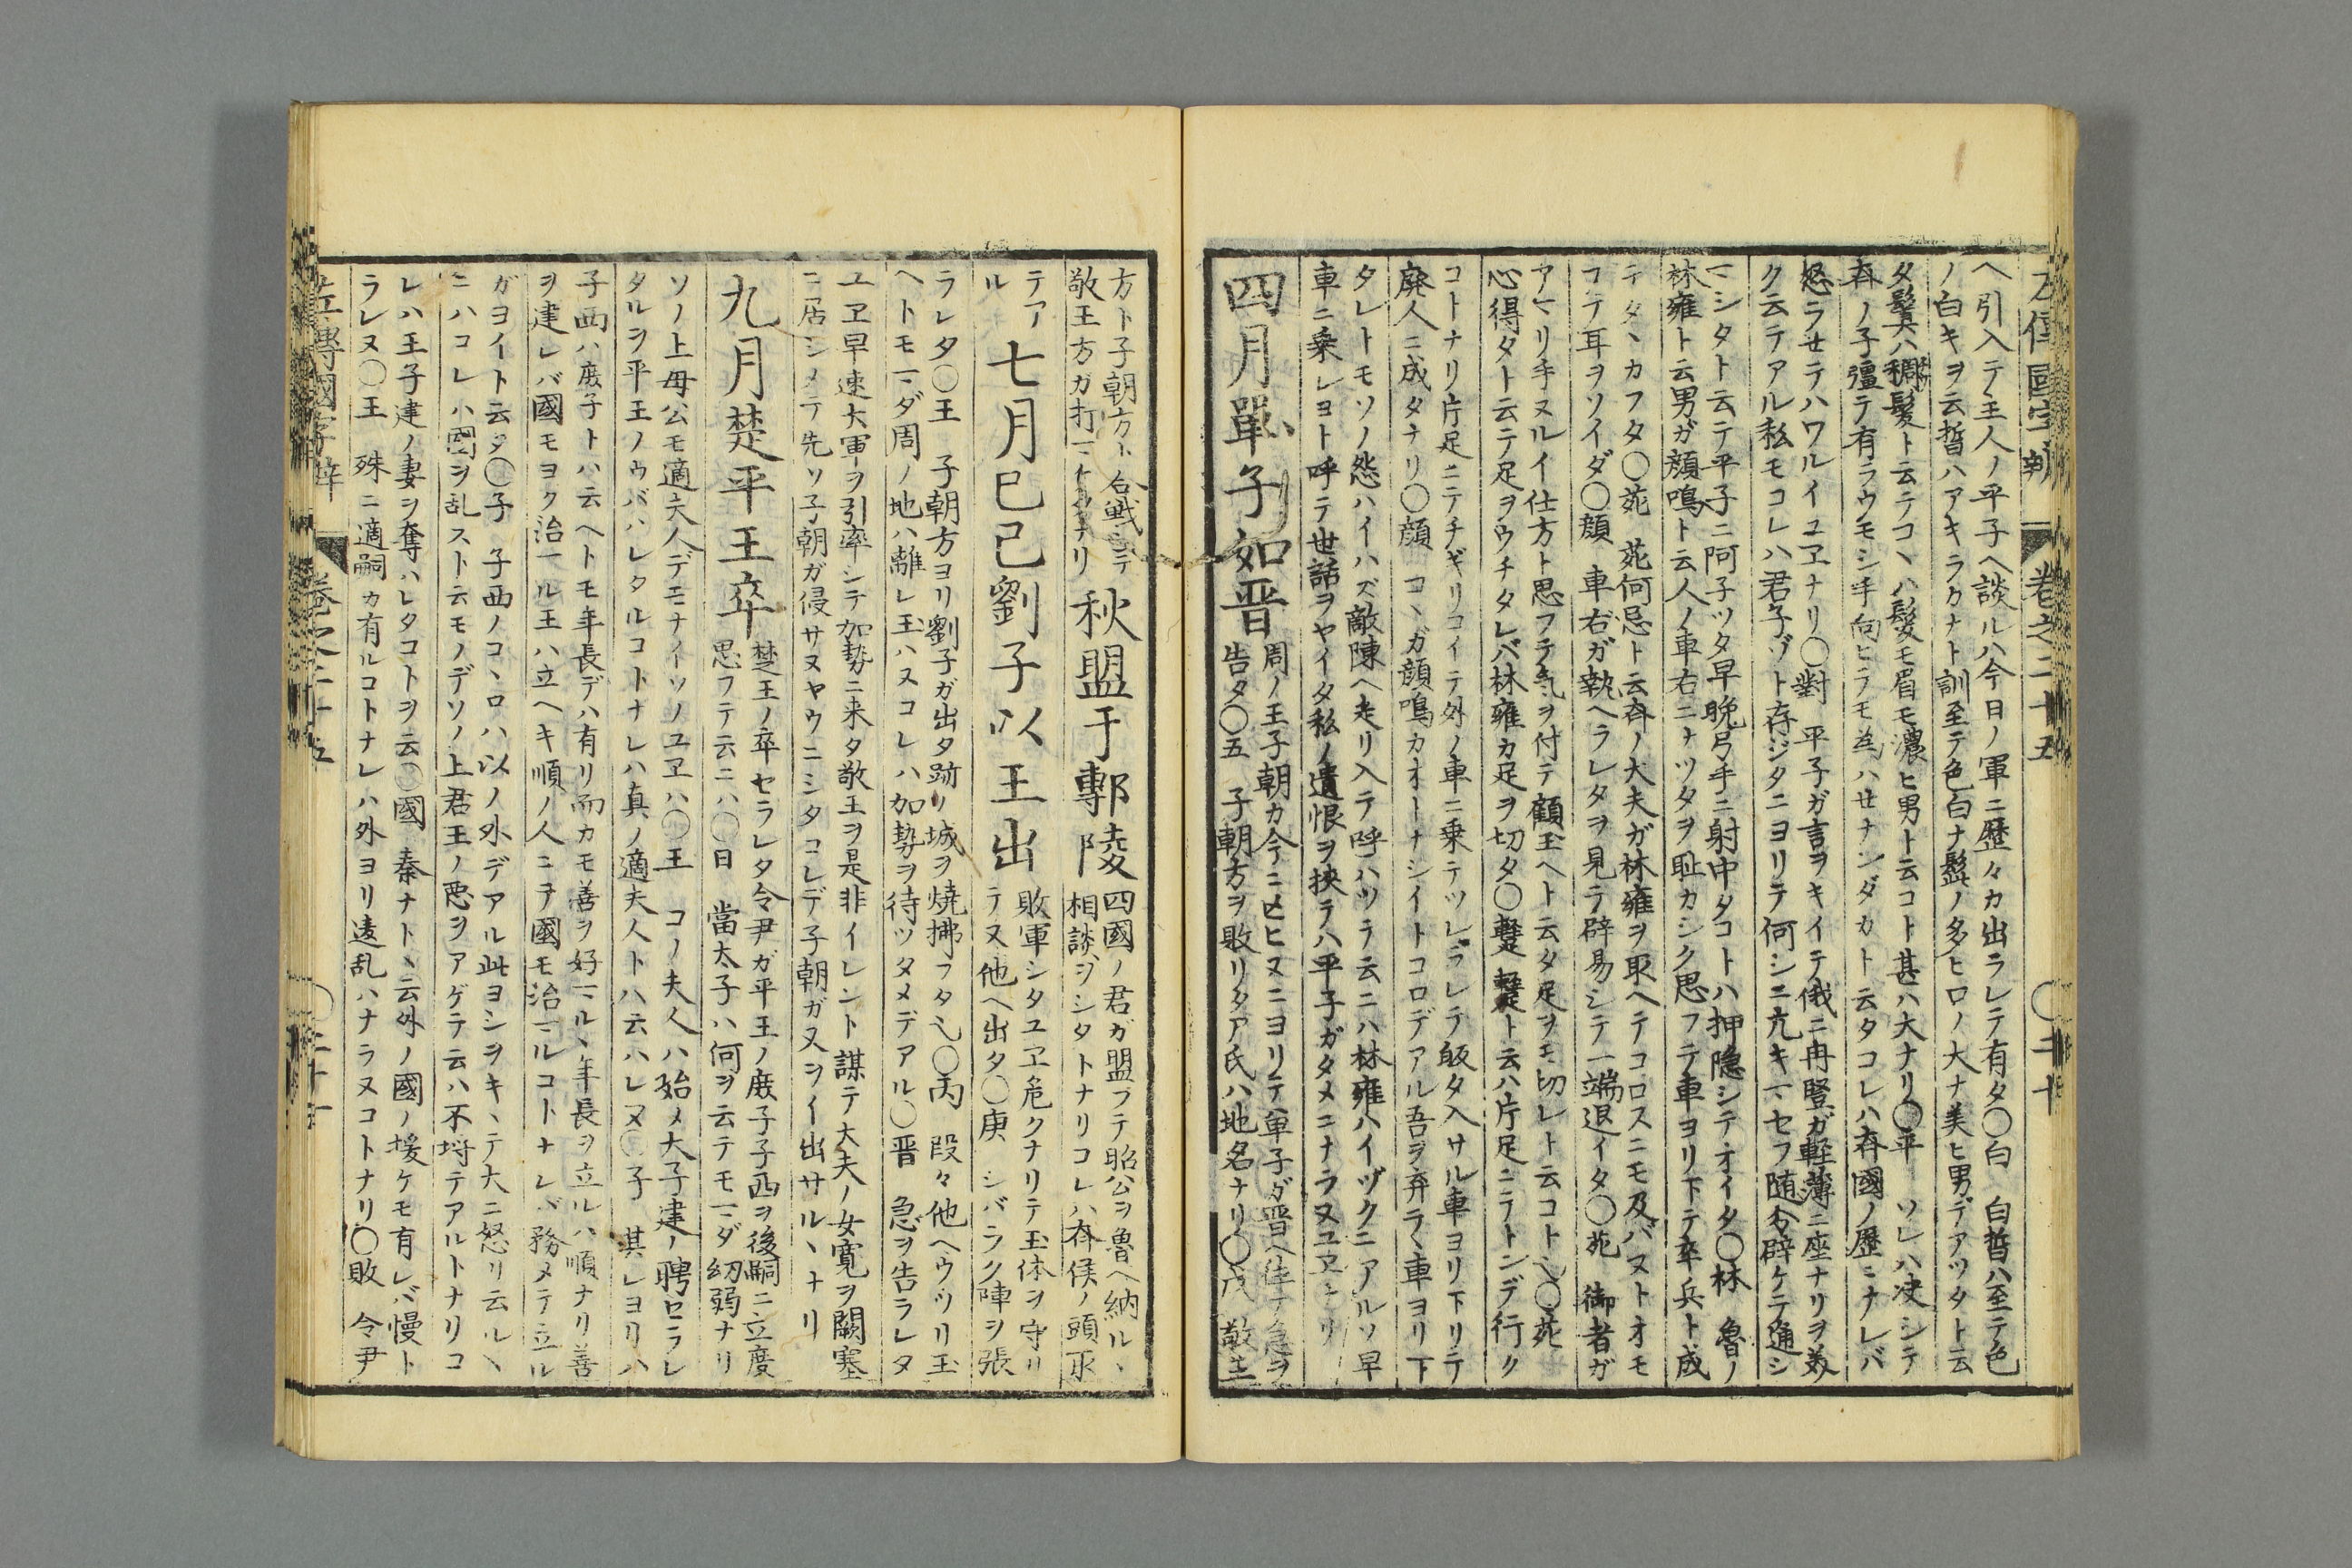 左傳國字辨 卷之二十五 〇二十
ヘ引入テ主人ノ平子ヘ談ルハ今日ノ軍ニ歴々カ出ラレテ有タ〇白 白皙ハ至テ色
ノ白キヲ云皙ハアキラカナト訓至テ色白ナ髭ノ多ヒロノ大ナ美ヒ男デアツタト云
タ鬒ハ稠髪ト云テコヽハ髪モ眉モ濃ヒ男ト云コト甚ハ大ナリ〇平 ソレハ决シテ
斉ノ子彊テ有ラウモシ手向ヒテモ為ハセナンダカト云タコレハ斉國ノ歴ニナレバ
怒ラせテハワルイユヱナリ〇對 平子ガ言ヲキイテ俄ニ冉豎ガ軽薄ニ座ナリヲ美
ク云テアル私モコレハ君子ゾト存ジタニヨリテ何シニ亢キマセフ随分辟ケテ通シ
マシタト云テ平子ニ阿子ツタ早晩弓手ニ射中タコトハ押隠シテオイタ〇林 魯ノ
林雍ト云男ガ顔鳴ト云人ノ車右ニナツタヲ耻カシク思フテ車ヨリ下テ卒兵ト成
テタヽカフタ〇苑 苑何忌ト云斉ノ大夫ガ林雍ヲ取ヘテコロスニモ及バヌトオモ
フテ耳ヲソイダ〇顔 車右ガ執ヘラレタヲ見テ辟易シテ一端退イタ〇苑 御者ガ
アマリ手ヌルイ仕方ト思フテ気ヲ付テ顧玉ヘト云タ足ヲモ切レト云コト也〇苑
心得タト云テ足ヲウチタレバ林雍カ足ヲ切タ〇鑋 鑋ト云ハ片足ニテトンデ行ク
コトナリ片足ニテチギリコイテ外ノ車ニ乗テツレラレテ皈タ入サル車ヨリ下リテ
廃人ニ成タナリ〇顔 コヽガ顔鳴カオトナシイトコロデアル吾ヲ弃ラヽ車ヨリ下
タレトモソノ怨ハイハズ敵陳ヘ走リ入テ呼ハツテ云ニハ林雍ハイヅクニアルソ早
車ニ乗レヨト呼テ世話ヲヤイタ私ノ遺恨ヲ挾テハ平子ガタメニナラヌユヱナリ
四月單子如晋 周ノ王子朝カ今ニ亡ヒヌニヨリテ單子ガ晋ヘ徃テ急ヲ
告タ〇五 子朝方ヲ敗リタア氏ハ地名ナリ〇戊 敬王
方ト子朝方ト合戦シテ
敬王方ガ打マケタナリ 秋盟于鄟陵 四國ノ君ガ盟フテ昭公ヲ魯ヘ納ルヽ
相談ヲシタトナリコレハ斉侯ノ頭取
テアル 七月己巳劉子以王出 敗軍シタユヱ危クナリテ玉体ヲ守リ
テ又他ヘ出タ〇庚 シバラク陣ヲ張
ラレタ〇王 子朝方ヨリ劉子ガ出タ跡ノ城ヲ焼拂フタ也〇丙 段々他ヘウツリ玉
ヘトモマダ周ノ地ハ離レ玉ハヌコレハ加勢ヲ待ツタメデアル〇晋 急ヲ告ラレタ
ユヱ早速大軍ヲ引率シテ加勢ニ来タ敬王ヲ是非イレント謀テ大夫ノ女寛ヲ闕塞
ニ居シメテ先ソ子朝ガ侵サヌヤウニシタコレデ子朝ガ又ヲイ出サルヽナリ
九月楚平王卒 楚王ノ卒セラレタ令尹ガ平王ノ庶子子西ヲ後嗣ニ立度
思フテ云ニハ〇日 當太子ハ何ヲ云テモマダ幼弱ナリ
ソノ上母公モ適夫人デモナイソノユヱハ〇王 コノ夫人ハ始メ大子建ノ聘セラレ
タルヲ平王ノウバハレタルコトナレハ真ノ適夫人トハ云ハレヌ〇子 其レヨリハ
子西ハ庶子トハ云ヘトモ年長デハ有リ而カモ善ヲ好マルヽ年長ヲ立ルハ順ナリ善
ヲ建レバ國モヨク治マル王ハ立ヘキ順ノ人ニテ國モ治マルコトナレバ務メテ立ル
ガヨイト云タ〇子 子西ノコヽロハ以ノ外デアル此ヨシヲキヽテ大ニ怒リ云ルヽ
ニハコレハ國ヲ乱ストト云モノデソノ上君王ノ悪ヲアゲテ云ハ不埒テアルトナリコ
レハ王子建ノ妻ヲ奪ハレタコトヲ云〇國 秦ナトヽ云外ノ國ノ援ケモ有レバ慢ト
ラレヌ〇王 殊ニ適嗣カ有ルコトナレハ外ヨリ遠乱ハナラヌコトナリ〇敗 令尹
左傳國字辨 卷之二十五 〇二十一